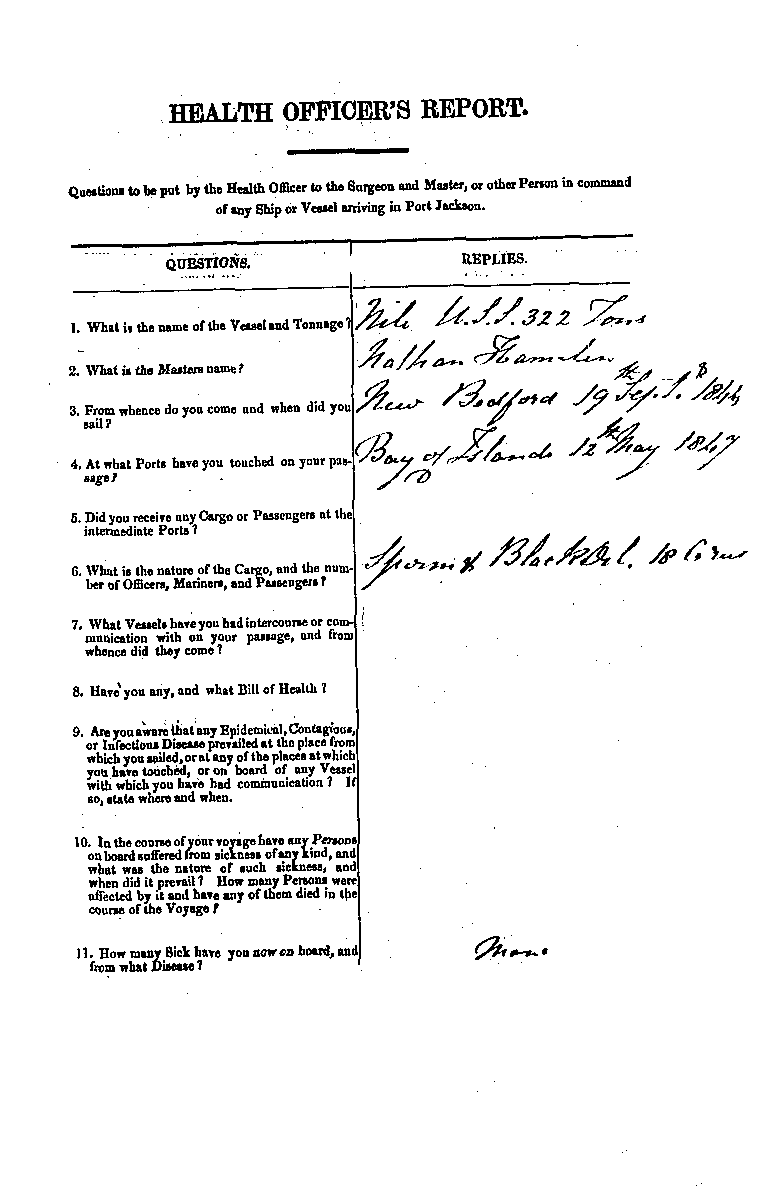 HEALTH OFFICER'S REPORT.
Questions to be put by the Health Officer to the Surgeon and Master, or other Person in command
of any Ship or Vessel arriving in Port Jackson.
QUESTIONS. REPLIES.
1. What is the name of the Vessel and Tonnage? Nile U.S.S. 322 Tons
2. What is the Masters name? Nathan
3. From whence do you come and when did you New Bedford 19th Sept.
sail?
4. At what Ports have you touched on your pas- Bay of Islands 12th May 1847
sage?
5. Did you receive any Cargo or Passengers at the
intermediate Ports?
6. What is the nature of the Cargo, and the num- Sperm & Black Oil. 18
ber of Officers, Mariners, and Passengers?
7. What Vessels have you had intercourse or com-
munication with on your passage, and from
whence did they come?
8. Have you any, and what Bill of Health?
9. Are you aware that any Epidemical, Contagious,
or Infectious Disease prevailed at the place from
which you sailed, or at any of the places at which
you have touched, or on board of any Vessel
with which you have had communication? If
so, state where and when.
10. In the course of your voyage have any Persons
on board suffered from sickness of any kind, and
what was the nature of such sickness, and
when did it prevail? How many Persons were
affected by it and have any of them died in the
course of the Voyage?
11. How many Sick have you now on board, and None
from what Disease?